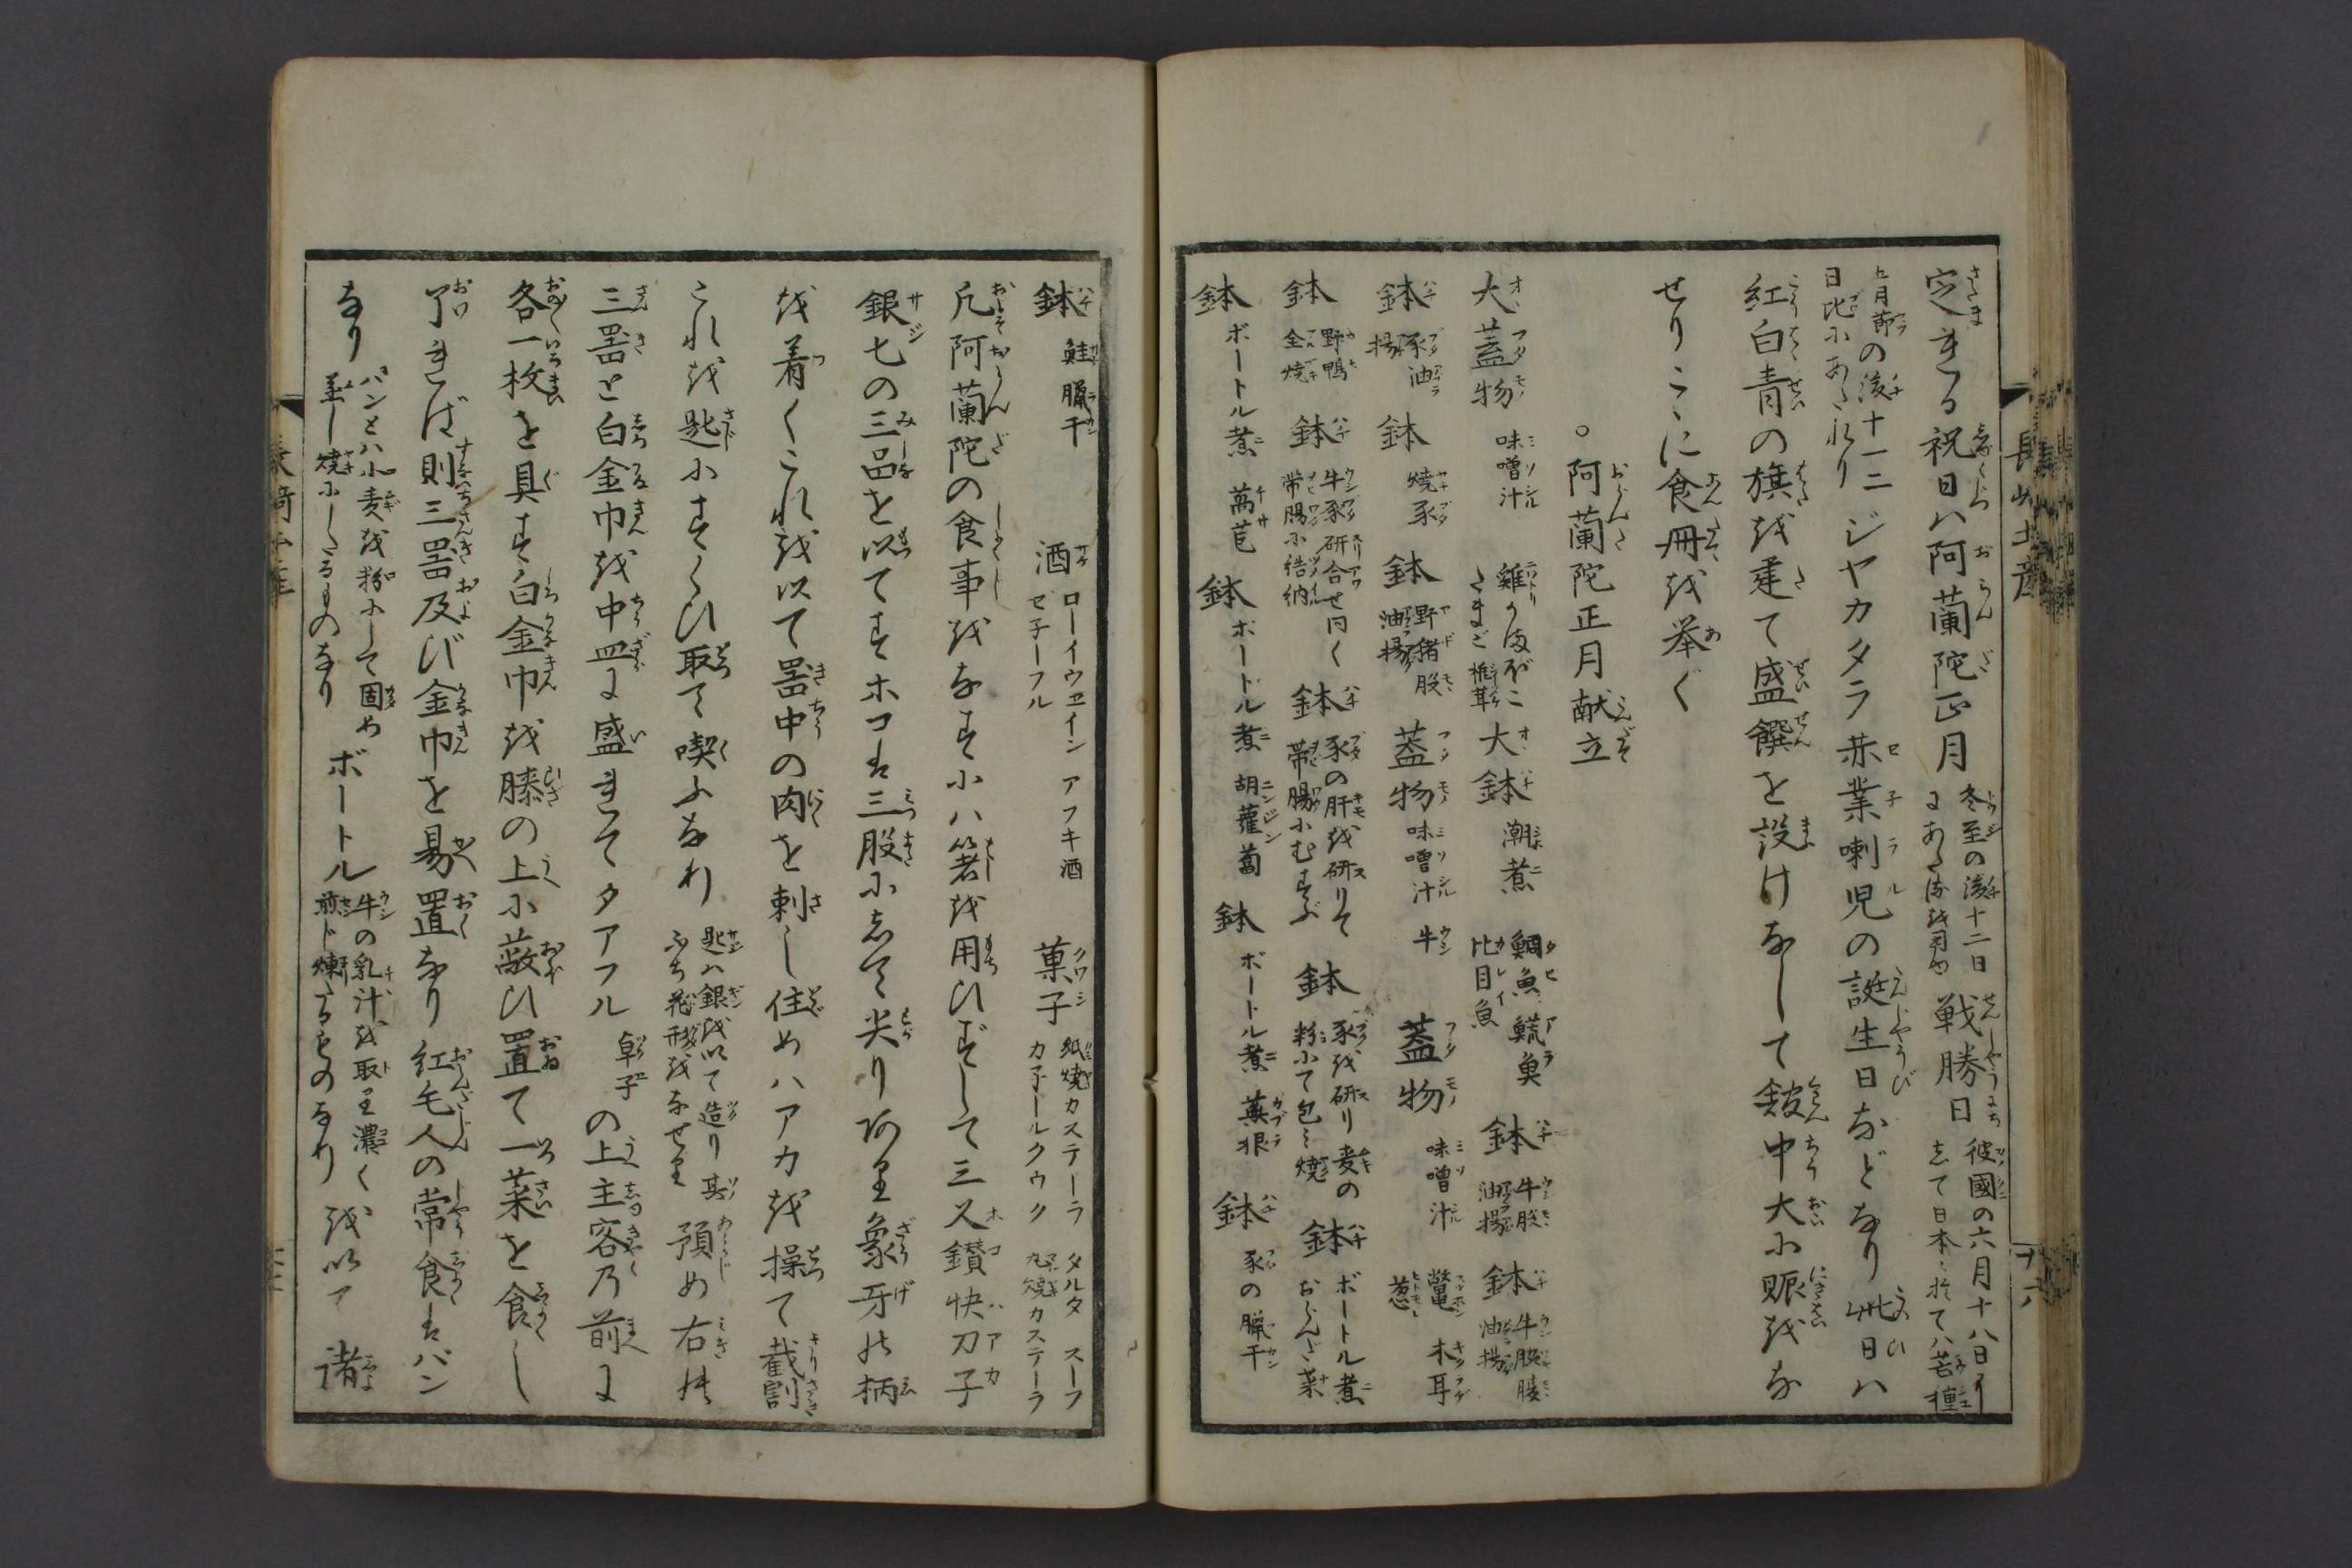 定まる祝日ハ阿蘭陀正月
冬至の後十二日
にあたる
戦勝日
彼國の六月十八日
して日本に於てハ芒種
五月節の後十一二
日比にあたれり
ジヤカタラ
業喇児の誕生日などなり此日ハ
紅白青の旗を建て盛饌を設けなして館中大に賑をな
せりこゝに食冊を挙ぐ
○阿蘭陀正月献立
大蓋物
味噌汁
雞かまぼこ
たまご 椎茸
大鉢
潮煮
鯛魚 鱵魚
比目魚
鉢
牛股
油揚
鉢
牛脇腹
油揚
鉢
豕油
揚
鉢
焼豕
鉢
野猪股
油揚
蓋物
味噌汁 牛
蓋物
味噌汁
鼈 木耳
葱
鉢
野鴨
全焼
鉢
牛豕研合せ肉く
帯腸に詰納
鉢
豕の肝を研りて
帯腸にむすぶ
鉢
豕を研り麦の
粉にて包ミ焼
鉢
ボートル煮
おらんだ菜
鉢
ボートル煮 萵苣
鉢
ボートル煮 胡蘿蔔
鉢
ボートル煮 蕪根
鉢
豕の臘干
鉢
鮭臘干
酒
ローイウヱイン アフキ酒
ゼ子ーフル
菓子
紙焼カステーラ タルタ スーフ
カ子ールクウク 丸焼カステーラ
凡阿蘭陀の食事をなすにハ箸を用ひずして三又鑚快刀子
銀七の三品を以てすホコは三股にして尖り象牙の柄
を着くこれを以て器中の肉を刺し住めハアカを操て截割
これを匙にすくひ取て喫ふなり
匙ハ銀を以て造り其
ふち花形をなせり
預め右の
三器と白金巾を中皿に盛きてタアフル
卓子
の上主客乃前に
各一枚を具す白金巾を膝の上に蔽ひ置て一菜を食し
了きば則三器及び金巾を易置なり紅毛人の常食はパン
なり
パンとハ小麦を粉にして固め
蒸し焼にしたるものなり
ボートル
牛の乳汁を取り濃く
煎じ煉たるものなり
を以て諸
長崎土産